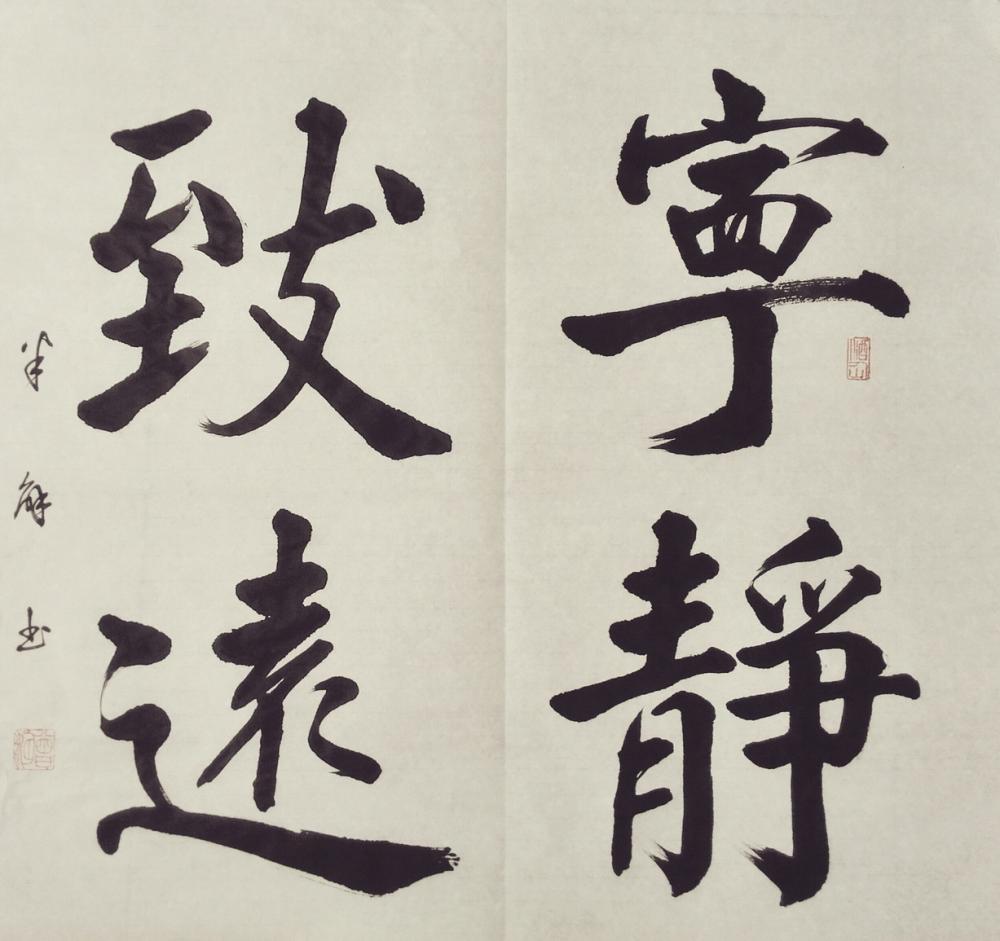 寧靜
致遠
半解书